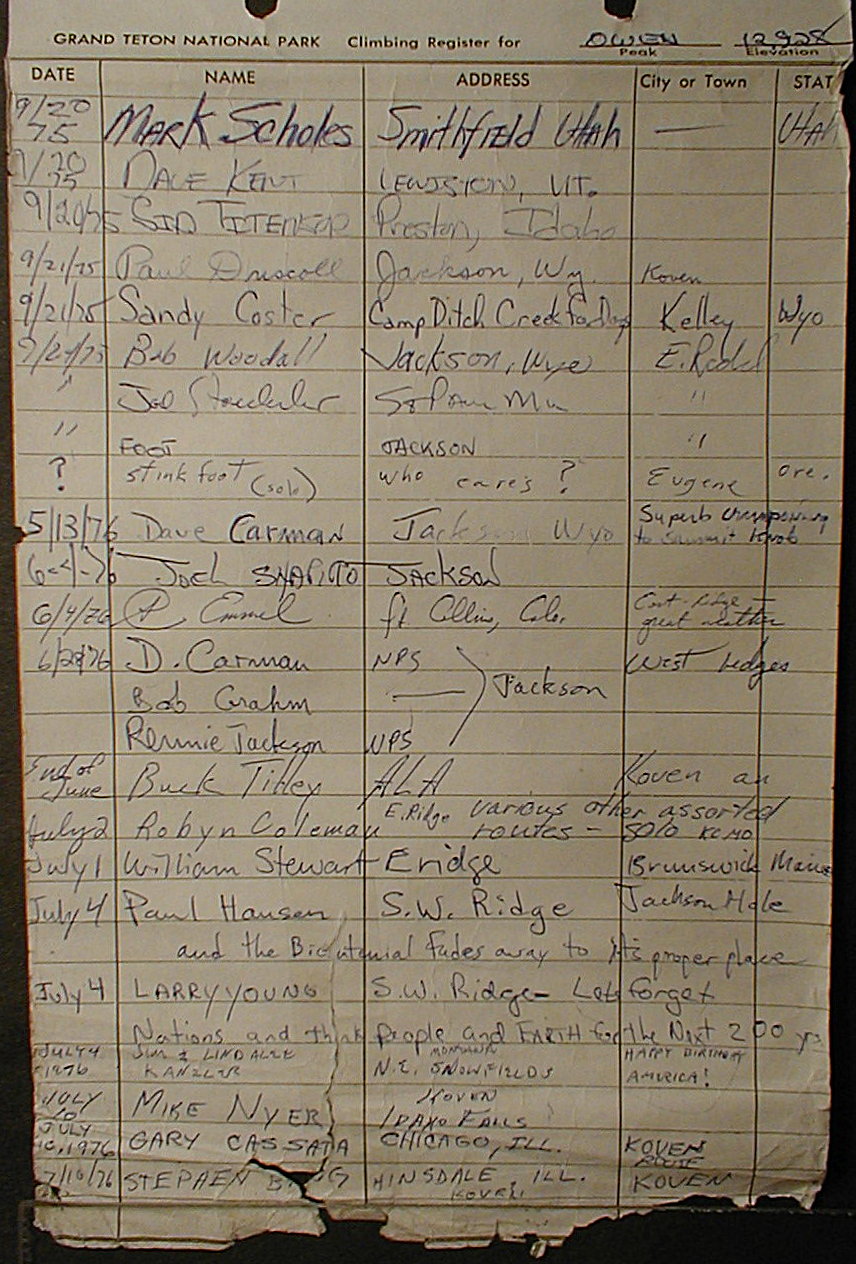 GRAND TETON NATIONAL PARK Climbing Register for OWEN 12928
Peak Elevation
DATE NAME ADDRESS City or Town STAT
9/20/75 Mark Scholes Smithfield Utah — Utah
9/20/75 DAVE KENT LEWISTON, UT.
9/20/75 SID Preston, Idaho
9/21/75 Paul Driscoll Jackson, Wy. Koven
9/21/75 Sandy Coster Camp Ditch Creek Kelley Wyo
9/27/75 Bob Woodall Jackson, Wyo
" Joe St Paul Mn "
" FOOT JACKSON "
? stink foot (solo) who cares ? Eugene Ore.
5/13/76 Dave Carman Jackson Wyo Superb
to summit knob
6-4-76 JACKSON
6/4/76 ft. Collins, Colo. great weather
6/28/76 D. Carman NPS West Ledges
Bob Grahm — Jackson
Rennie Jackson NPS
End of June Buck Tilley ALA Koven an
July 2 Robyn Coleman E. Ridge various other assorted
routes – solo
July 1 William Stewart E ridge Brunswick Maine
July 4 Paul Hansen S.W. Ridge Jackson Hole
and the Bicentenial fades away to its proper place
July 4 LARRY YOUNG S.W. Ridge – Lets forget
Nations and think People and EARTH for the Next 200 yrs
JULY 4 1976 JIM & KANZLER N.E. SNOWFIELDS HAPPY BIRTHDAY AMERICA!
JULY 10 MIKE NYER KOVEN IDAHO FALLS
JULY 10, 1976 GARY CASSATA CHICAGO, ILL. KOVEN ROUTE
7/10/76 STEPHEN HINSDALE, ILL. KOVEN